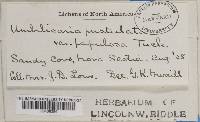 Lichens of North America
Umbilicaria pustulata
var. papulosa Tuck.
Sandy Cove, Nova Scotia. Aug.
Coll. Mrs. J.D. Lowe. Det. G.K. Merrill
HERBARIUM OF
LINCOLN W. RIDDLE